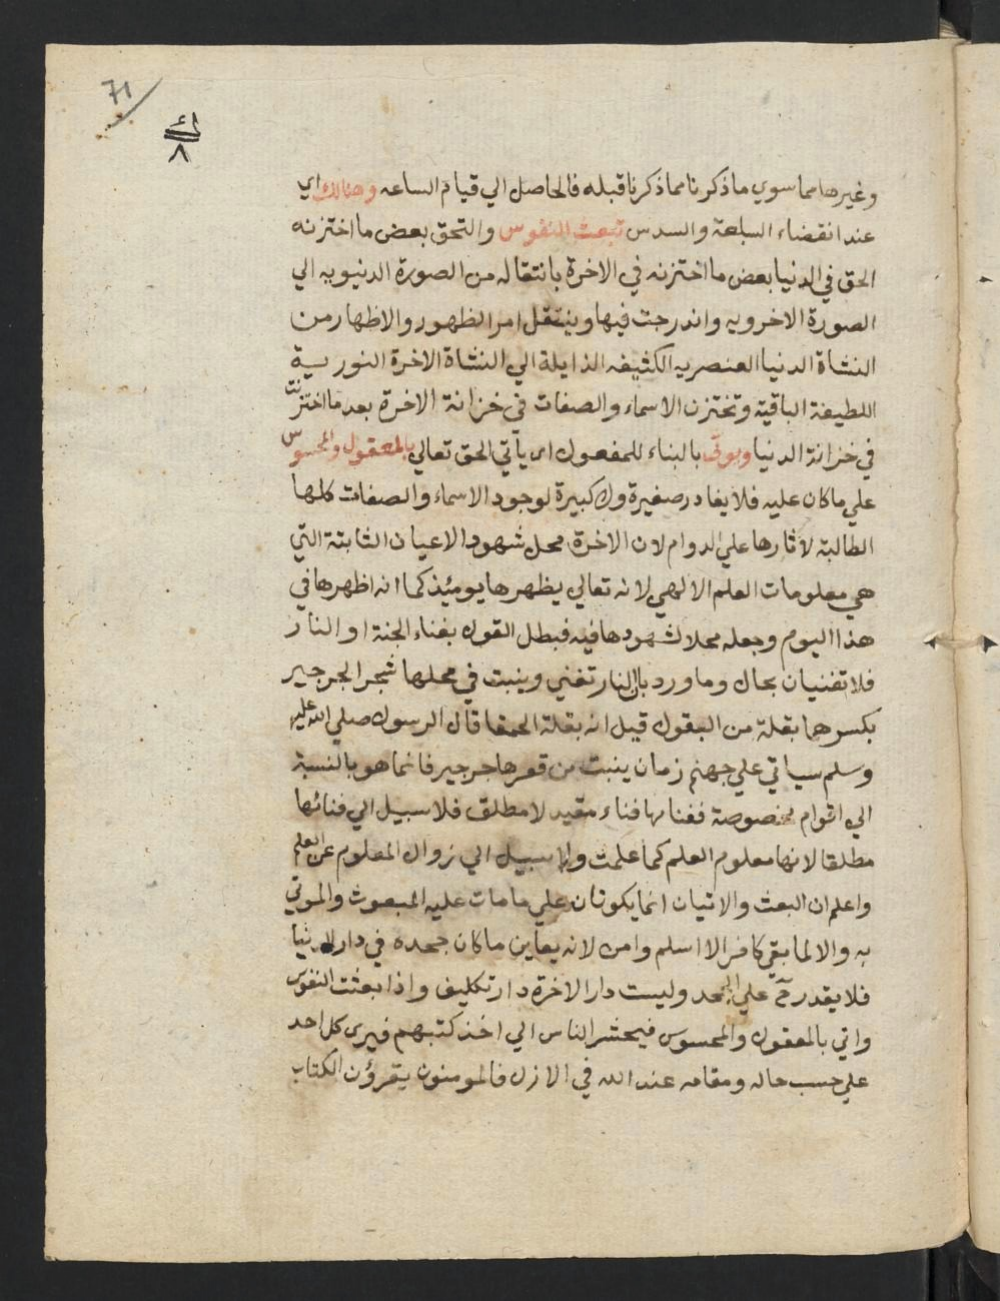 71
ك
٨
وغيرها مما سوي ما ذكرنا مما ذكرنا قبله فالحاصل الي قيام الساعه وهنالك اي
عند انقضاء السبعة والسدس تبعث النفوس والتحق بعض ما اختزنه
الحق في الدنيا بعض ما اختزنه في الاخرة بانتقاله من الصورة الدنيويه الي
الصورة الاخرويه واندرجت فيها وينتقل امر الظهور والاظهار من
النشاة الدنيا العنصريه الكثيفه الزايلة الي النشاة الاخرة النورية
اللطيفة الباقية وتختزن الاسماء والصفات في خزانة الاخرة بعد ما اختزنت
في خزانة الدنيا ويوتي بالبناء للمفعول اي ياتي الحق تعالي بالمعقول والمحسوس
علي ما كان عليه فلا يغادر صغيرة ولا كبيرة لوجود الاسماء والصفات كلها
الطالبة لاثارها علي الدوام لان الاخرة محل شهود الاعيان الثابتة التي
هي معلومات العلم الالهي لانه تعالي يظهرها يومئذ كما انه اظهرها في
هذا اليوم وجعله محلا لشهودها فيه فبطل القول بفناء الجنة او النار
فلا تفنيان بحال وما ورد بان النار تفني وينبت في محلها شجر الجرجير
بكسرهما بقلة من البقول قيل انه بقلة الحمقا قال الرسول صلي الله عليه
وسلم سياتي علي جهنم زمان ينبت من قعرها جرجير فانما هو بالنسبة
الي اقوام مخصوصة ففناها فناء مقيد لا مطلق فلا سبيل الي فنائها
مطلقا لانها معلوم العلم كما علمت ولا سبيل الي زوال المعلوم عن العلم
واعلم ان البعث والاتيان انما يكونان علي ما مات عليه المبعوث والموتي
به والا لما بقي كافر الا اسلم وامن لانه يعاين ما كان جحده في دار الدنيا
فلا يقدر ح علي الجحد وليست دار الاخرة دار تكليف واذا بعثت النفوس
واتي بالمعقول والمحسوس فيحشر الناس الي اخذ كتبهم فيري كل احد
علي حسب حاله ومقامه عند الله في الازل فالمومنون يقرؤن الكتاب